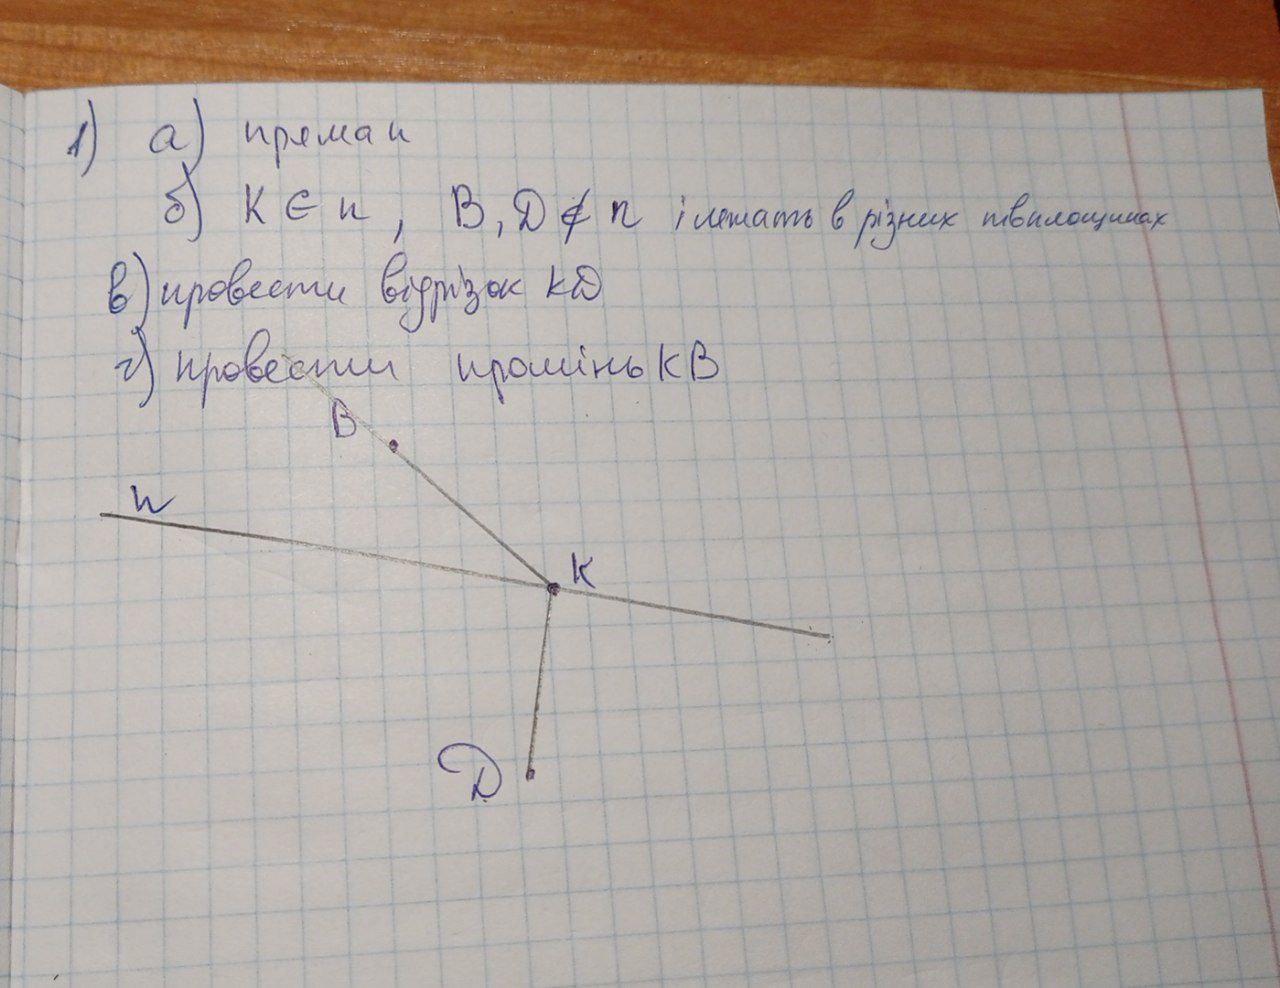 1) а) пряма n
б) K ∈ n, В, D ∉ n і лежать в різних півплощинах
в) провести відрізок KD
г) провести промінь KB
B
n
K
D